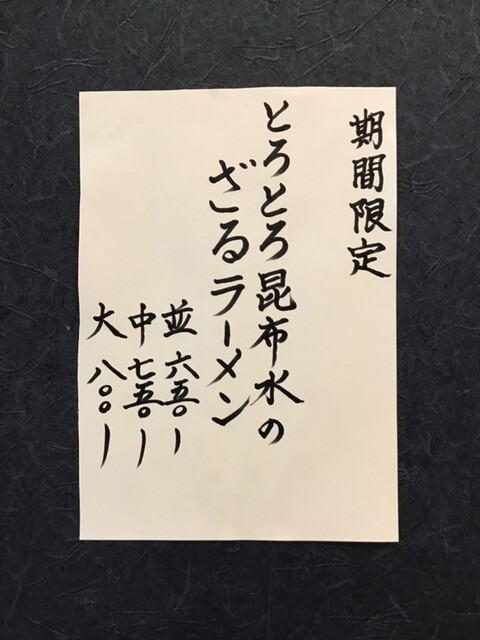 期間限定
とろとろ昆布水の
ざるラーメン
並 六五〇ー
中 七五〇ー
大 八〇〇ー